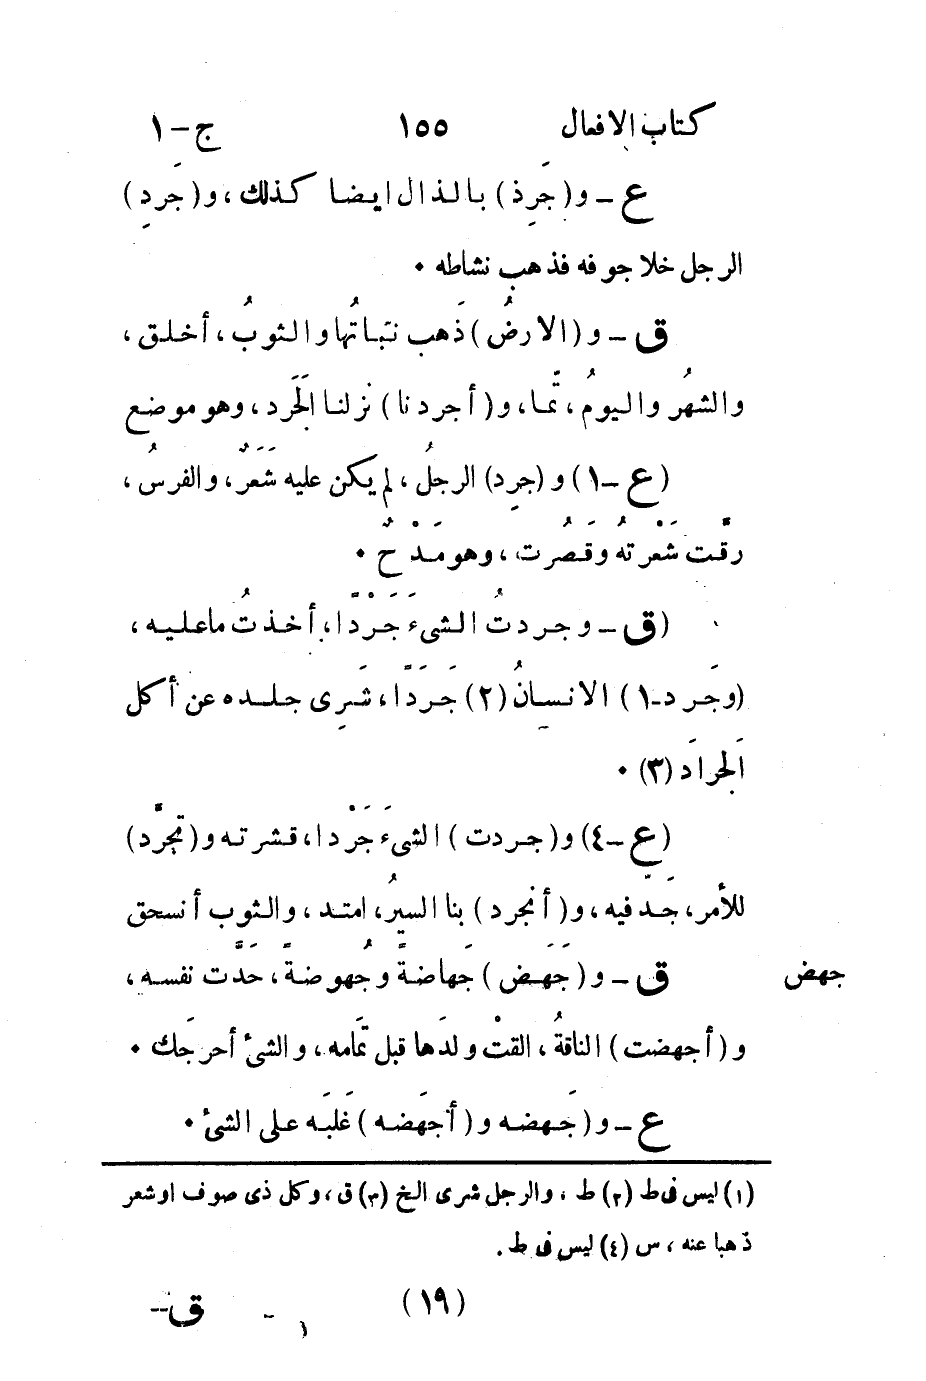 كتاب الافعال ١٥٥ ج-١
ع - و (جَرِذ) بالذال ايضا كذلك، و (جَرِد)
الرجل خلا جوفه فذهب نشاطه •
ق - و (الارضُ) ذَهب نَباتُها والثوبُ، أخلق،
والشهرُ واليومُ، تّما، و (أجردنا) نزلنا الجَرَد، وهو موضع
(ع -١) و (جرِد) الرجلُ، لم يكن عليه شَعَرٌ، والفرسُ،
رقّت شَعْرتهُ وقَصُرت، وهو مَدْحٌ •
(ق - وجردتُ الشىءَ جَرْدًا، أخذتُ ماعليه،
(وجَرد-١) الانسانُ (٢) جَرَدًا، شَرِى جلده عن أكل
الجرادَ (٣) •
(ع -٤) و (جردت) الشىءَ جَرْدا، قشرته و (تجرَّد)
للأمر، جَدّ فيه، و (أنجرد) بنا السيرُ، امتد، والثوب أنسحق
جهض ق - و (جَهَض) جَهاضةً وجُهوضةً، حَدَّت نفسه،
و (أجهضت) الناقةُ، القتْ ولدَها قبل تَمامه، والشئ أحرجَك •
ع - و (جَهضه و (أجهَضه) غَلَبَه على الشئ •
(١) ليس فى ط (٢) ط، والرجل شرى الخ (٣) ق، وكل ذى صوف اوشعر
ذهبا عنه، س (٤) ليس فى ط.
(١٩) ق--